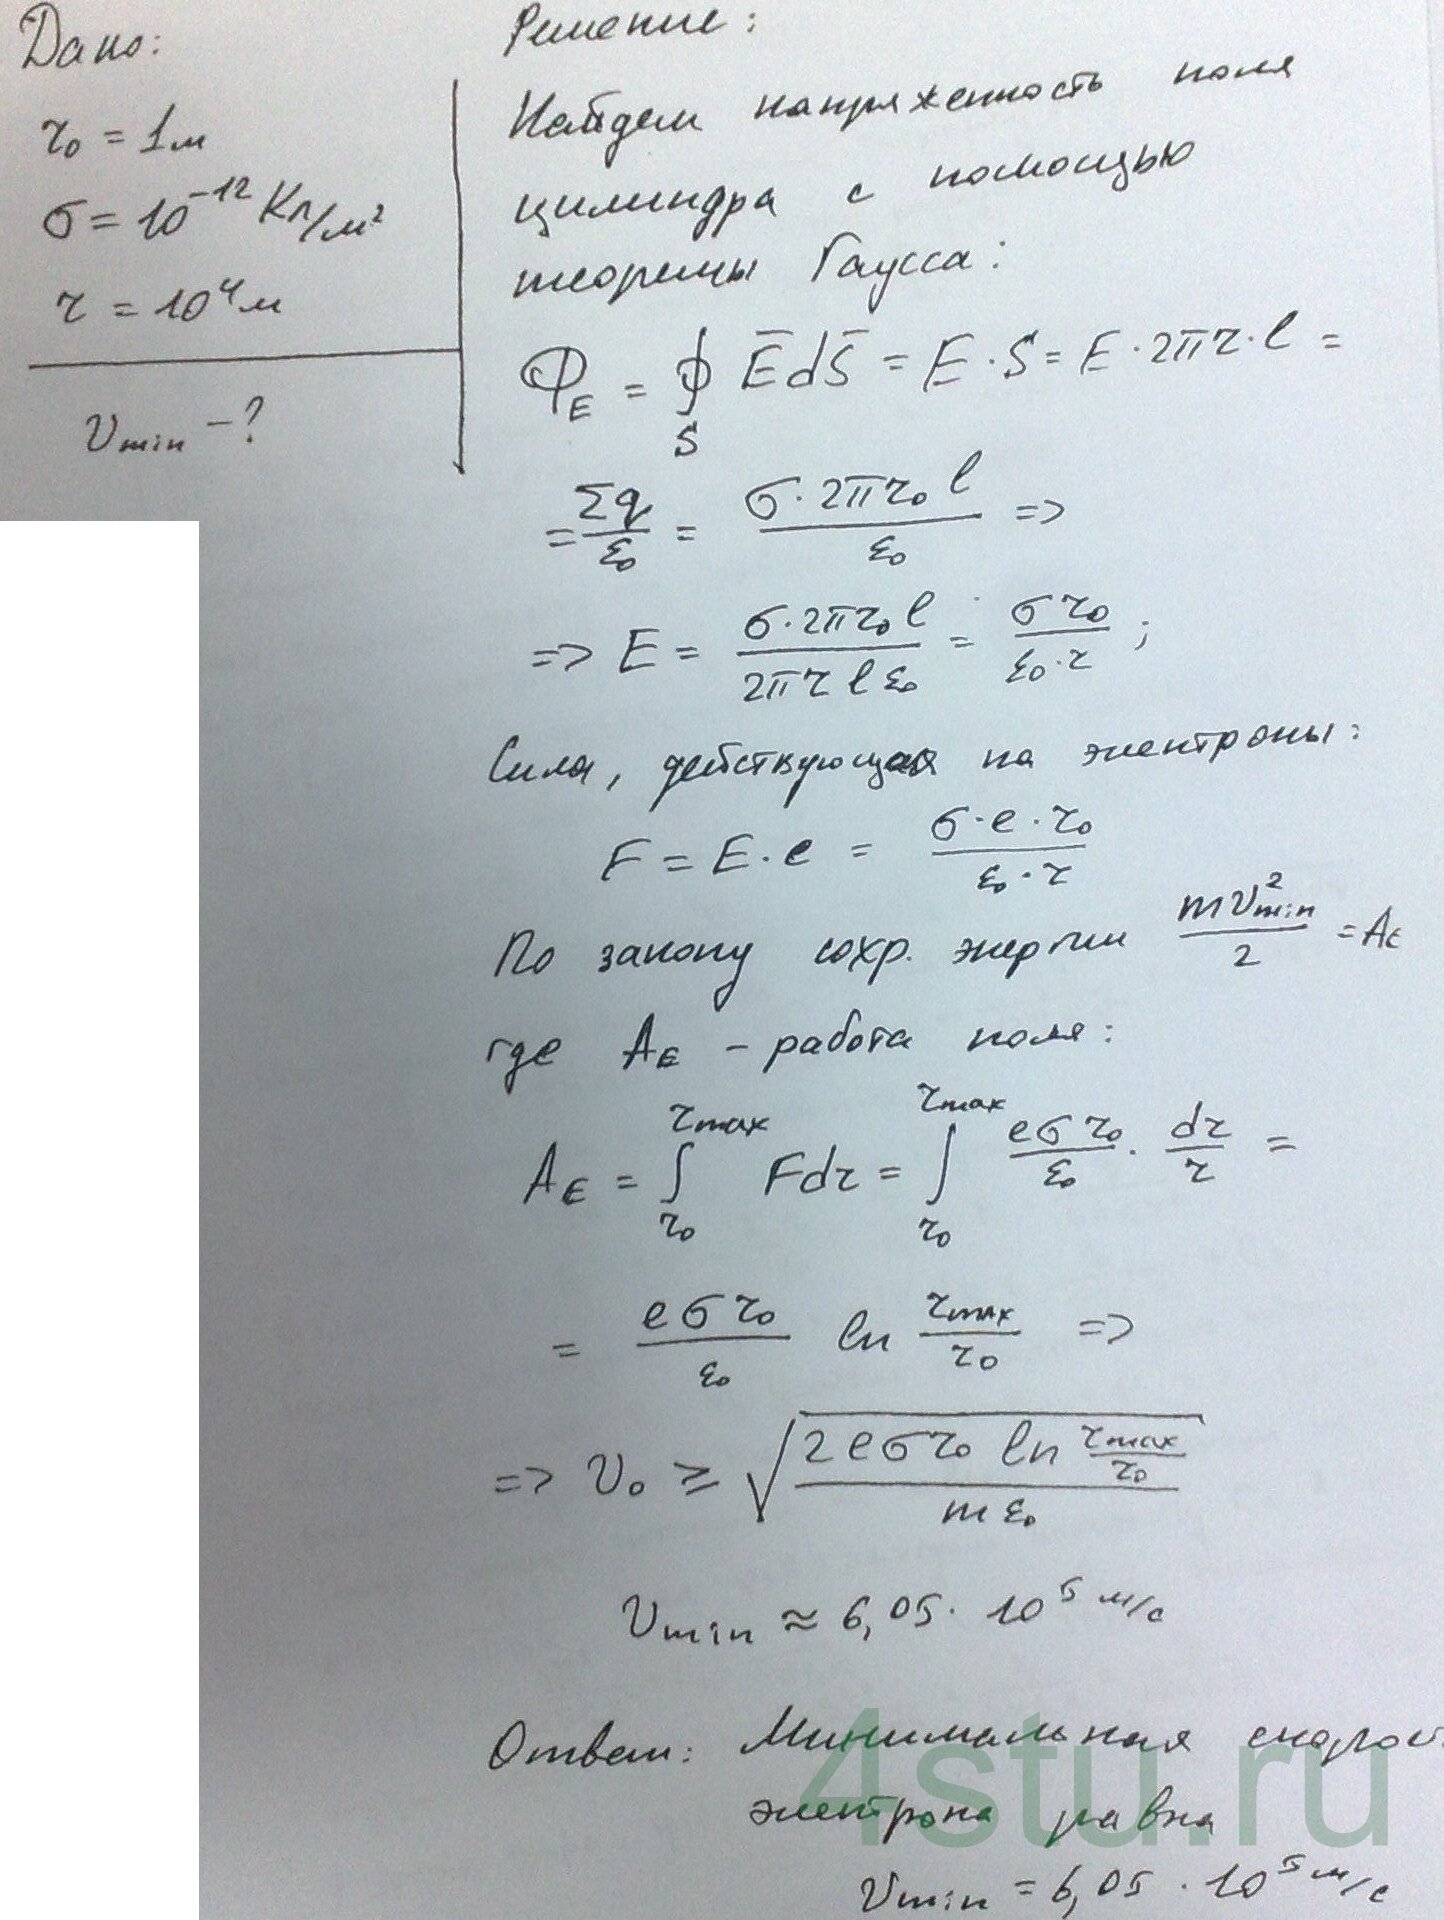 Дано:
r₀ = 1 м
σ = 10⁻¹² Кл/м²
r = 10⁴ м
υmin - ?
Решение:
Найдем напряженность поля
цилиндра с помощью
теоремы Гаусса:
Φ_E = ∮_S E̅dS̅ = E · S = E · 2πr · l =
= Σq/ε₀ = σ · 2πr₀ l/ε₀ =>
=> E = σ · 2πr₀ l/2πr l ε₀ = σ r₀/ε₀ · r ;
Сила, действующая на электроны:
F = E · e = σ · e · r₀/ε₀ · r
По закону сохр. энергии mυ²min/2 = A_E
где A_E - работа поля:
A_E = ∫_{r₀}^{rmax} Fdr = ∫_{r₀}^{rmax} eσr₀/ε₀ · dr/r =
= eσr₀/ε₀ ln rmax/r₀ =>
=> υ₀ ≥ √(2eσr₀ ln rmax/r₀ / mε₀)
υmin ≈ 6,05 · 10⁵ м/с
Ответ: Минимальная скорост
электрона равна
υmin = 6,05 · 10⁵ м/с
4stu.ru